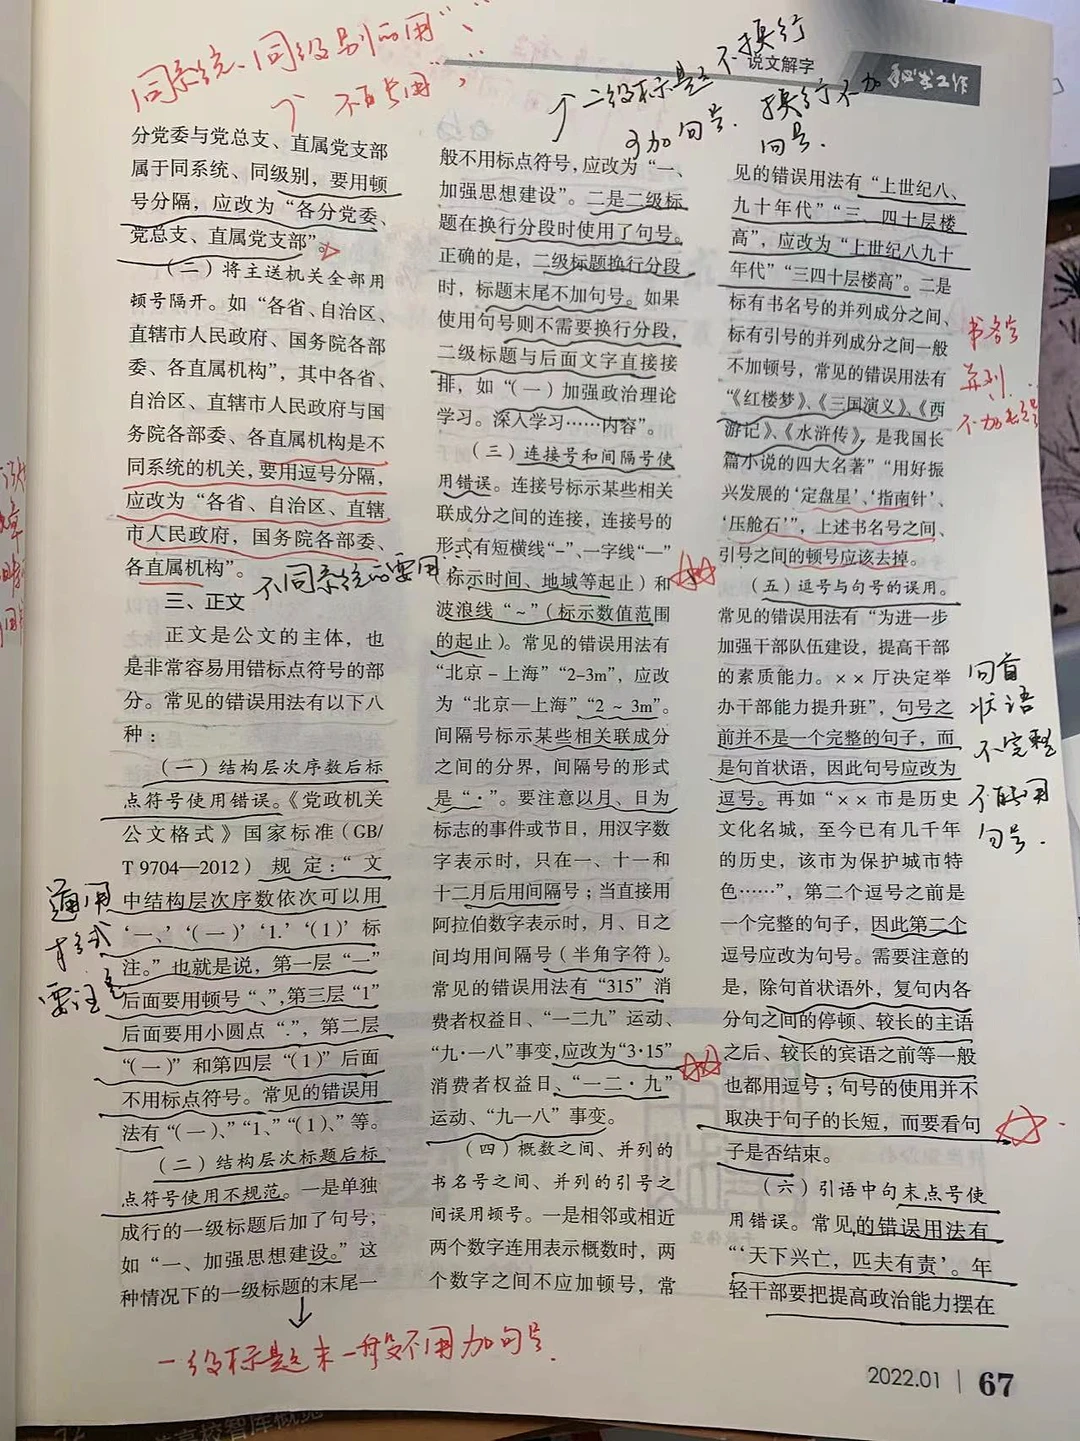 同系统、同级别的用“、”
不再用“，”
个二级标题不换行
可加句号.
换行不加
句号.
说文解字
秘书工作
分党委与党总支、直属党支部
属于同系统、同级别，要用顿
号分隔，应改为“各分党委、
党总支、直属党支部”。
（二）将主送机关全部用
顿号隔开。如“各省、自治区、
直辖市人民政府、国务院各部
委、各直属机构”，其中各省、
自治区、直辖市人民政府与国
务院各部委、各直属机构是不
同系统的机关，要用逗号分隔，
应改为“各省、自治区、直辖
市人民政府，国务院各部委、
各直属机构”。
不同系统的要用，
三、正文
正文是公文的主体，也
是非常容易用错标点符号的部
分。常见的错误用法有以下八
种：
（一）结构层次序数后标
点符号使用错误。《党政机关
公文格式》国家标准（GB/
T 9704—2012）规定：“文
中结构层次序数依次可以用
‘一、’‘（一）’‘1.’‘（1）’标
注。”也就是说，第一层“一”
后面要用顿号“、”，第三层“1”
后面要用小圆点“.”，第二层
“（一）”和第四层“（1）”后面
不用标点符号。常见的错误用
法有“（一）、”“1、”“（1）、”等。
通用
格式
要注意
（二）结构层次标题后标
点符号使用不规范。一是单独
成行的一级标题后加了句号，
如“一、加强思想建设。”这
种情况下的一级标题的末尾一
一级标题末一般不用加句号.
般不用标点符号，应改为“一、
加强思想建设”。二是二级标
题在换行分段时使用了句号。
正确的是，二级标题换行分段
时，标题末尾不加句号。如果
使用句号则不需要换行分段，
二级标题与后面文字直接接
排，如“（一）加强政治理论
学习。深入学习……内容”。
（三）连接号和间隔号使
用错误。连接号标示某些相关
联成分之间的连接，连接号的
形式有短横线“-”、一字线“—”
（标示时间、地域等起止）和
波浪线“~”（标示数值范围
的起止）。常见的错误用法有
“北京－上海”“2-3m”，应改
为“北京—上海”“2 ~ 3m”。
间隔号标示某些相关联成分
之间的分界，间隔号的形式
是“·”。要注意以月、日为
标志的事件或节日，用汉字数
字表示时，只在一、十一和
十二月后用间隔号；当直接用
阿拉伯数字表示时，月、日之
间均用间隔号（半角字符）。
常见的错误用法有“315”消
费者权益日、“一二九”运动、
“九·一八”事变，应改为“3·15”
消费者权益日、“一二·九”
运动、“九一八”事变。
（四）概数之间、并列的
书名号之间、并列的引号之
间误用顿号。一是相邻或相近
两个数字连用表示概数时，两
个数字之间不应加顿号，常
见的错误用法有“上世纪八、
九十年代”“三、四十层楼
高”，应改为“上世纪八九十
年代”“三四十层楼高”。二是
标有书名号的并列成分之间、
标有引号的并列成分之间一般
不加顿号，常见的错误用法有
“《红楼梦》、《三国演义》、《西
游记》、《水浒传》，是我国长
篇小说的四大名著”“用好振
兴发展的‘定盘星’、‘指南针’、
‘压舱石’”，上述书名号之间、
引号之间的顿号应该去掉。
书名号
并列
不加顿号
（五）逗号与句号的误用。
常见的错误用法有“为进一步
加强干部队伍建设，提高干部
的素质能力。××厅决定举
办干部能力提升班”，句号之
前并不是一个完整的句子，而
是句首状语，因此句号应改为
逗号。再如“××市是历史
文化名城，至今已有几千年
的历史，该市为保护城市特
色……”，第二个逗号之前是
一个完整的句子，因此第二个
逗号应改为句号。需要注意的
是，除句首状语外，复句内各
分句之间的停顿、较长的主语
之后、较长的宾语之前等一般
也都用逗号；句号的使用并不
取决于句子的长短，而要看句
子是否结束。
句首
状语
不完整
不能用
句号.
（六）引语中句末点号使
用错误。常见的错误用法有
“‘天下兴亡，匹夫有责’。年
轻干部要把提高政治能力摆在
2022.01 | 67
高校智库概览